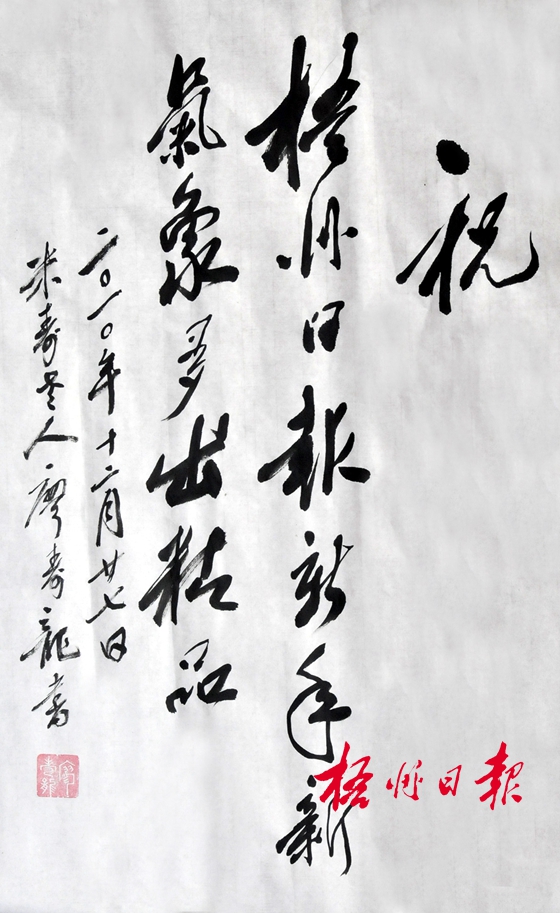 祝
梧州日报新年新
氣象多出精品
二〇一〇年十二月廿七日
米寿老人廖寿龍書
梧州日报